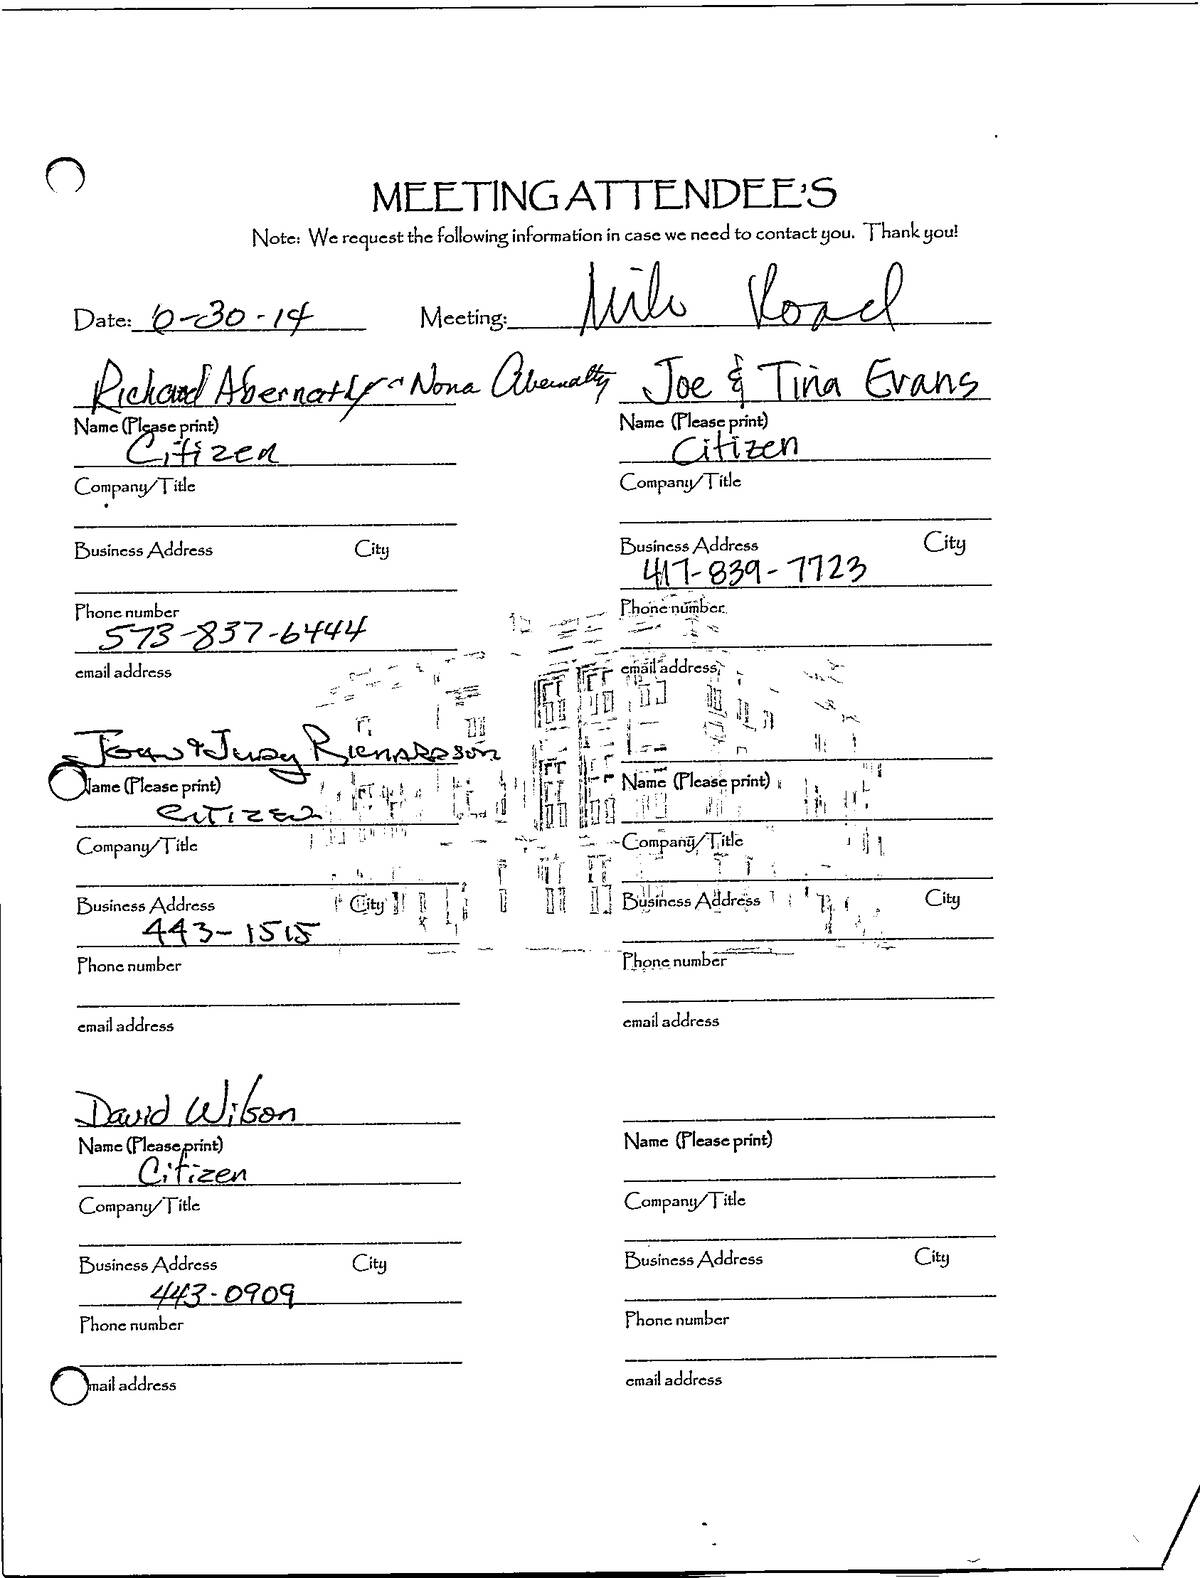 MEETING ATTENDEE'S
Note: We request the following information in case we need to contact you. Thank you!
Date: 6-30-14 Meeting: Road
Richard Abernathy & Nona Abernathy Joe & Tina Evans
Name (Please print) Name (Please print)
Citizen Citizen
Company/Title Company/Title
Business Address City Business Address City
417-839-7723
Phone number Phone number
573-837-6444
email address email address
John & Judy Richardson
Name (Please print) Name (Please print)
CITIZEN
Company/Title Company/Title
Business Address City Business Address City
443-1515
Phone number Phone number
email address email address
David Wilson
Name (Please print) Name (Please print)
Citizen
Company/Title Company/Title
Business Address City Business Address City
443-0909
Phone number Phone number
mail address email address